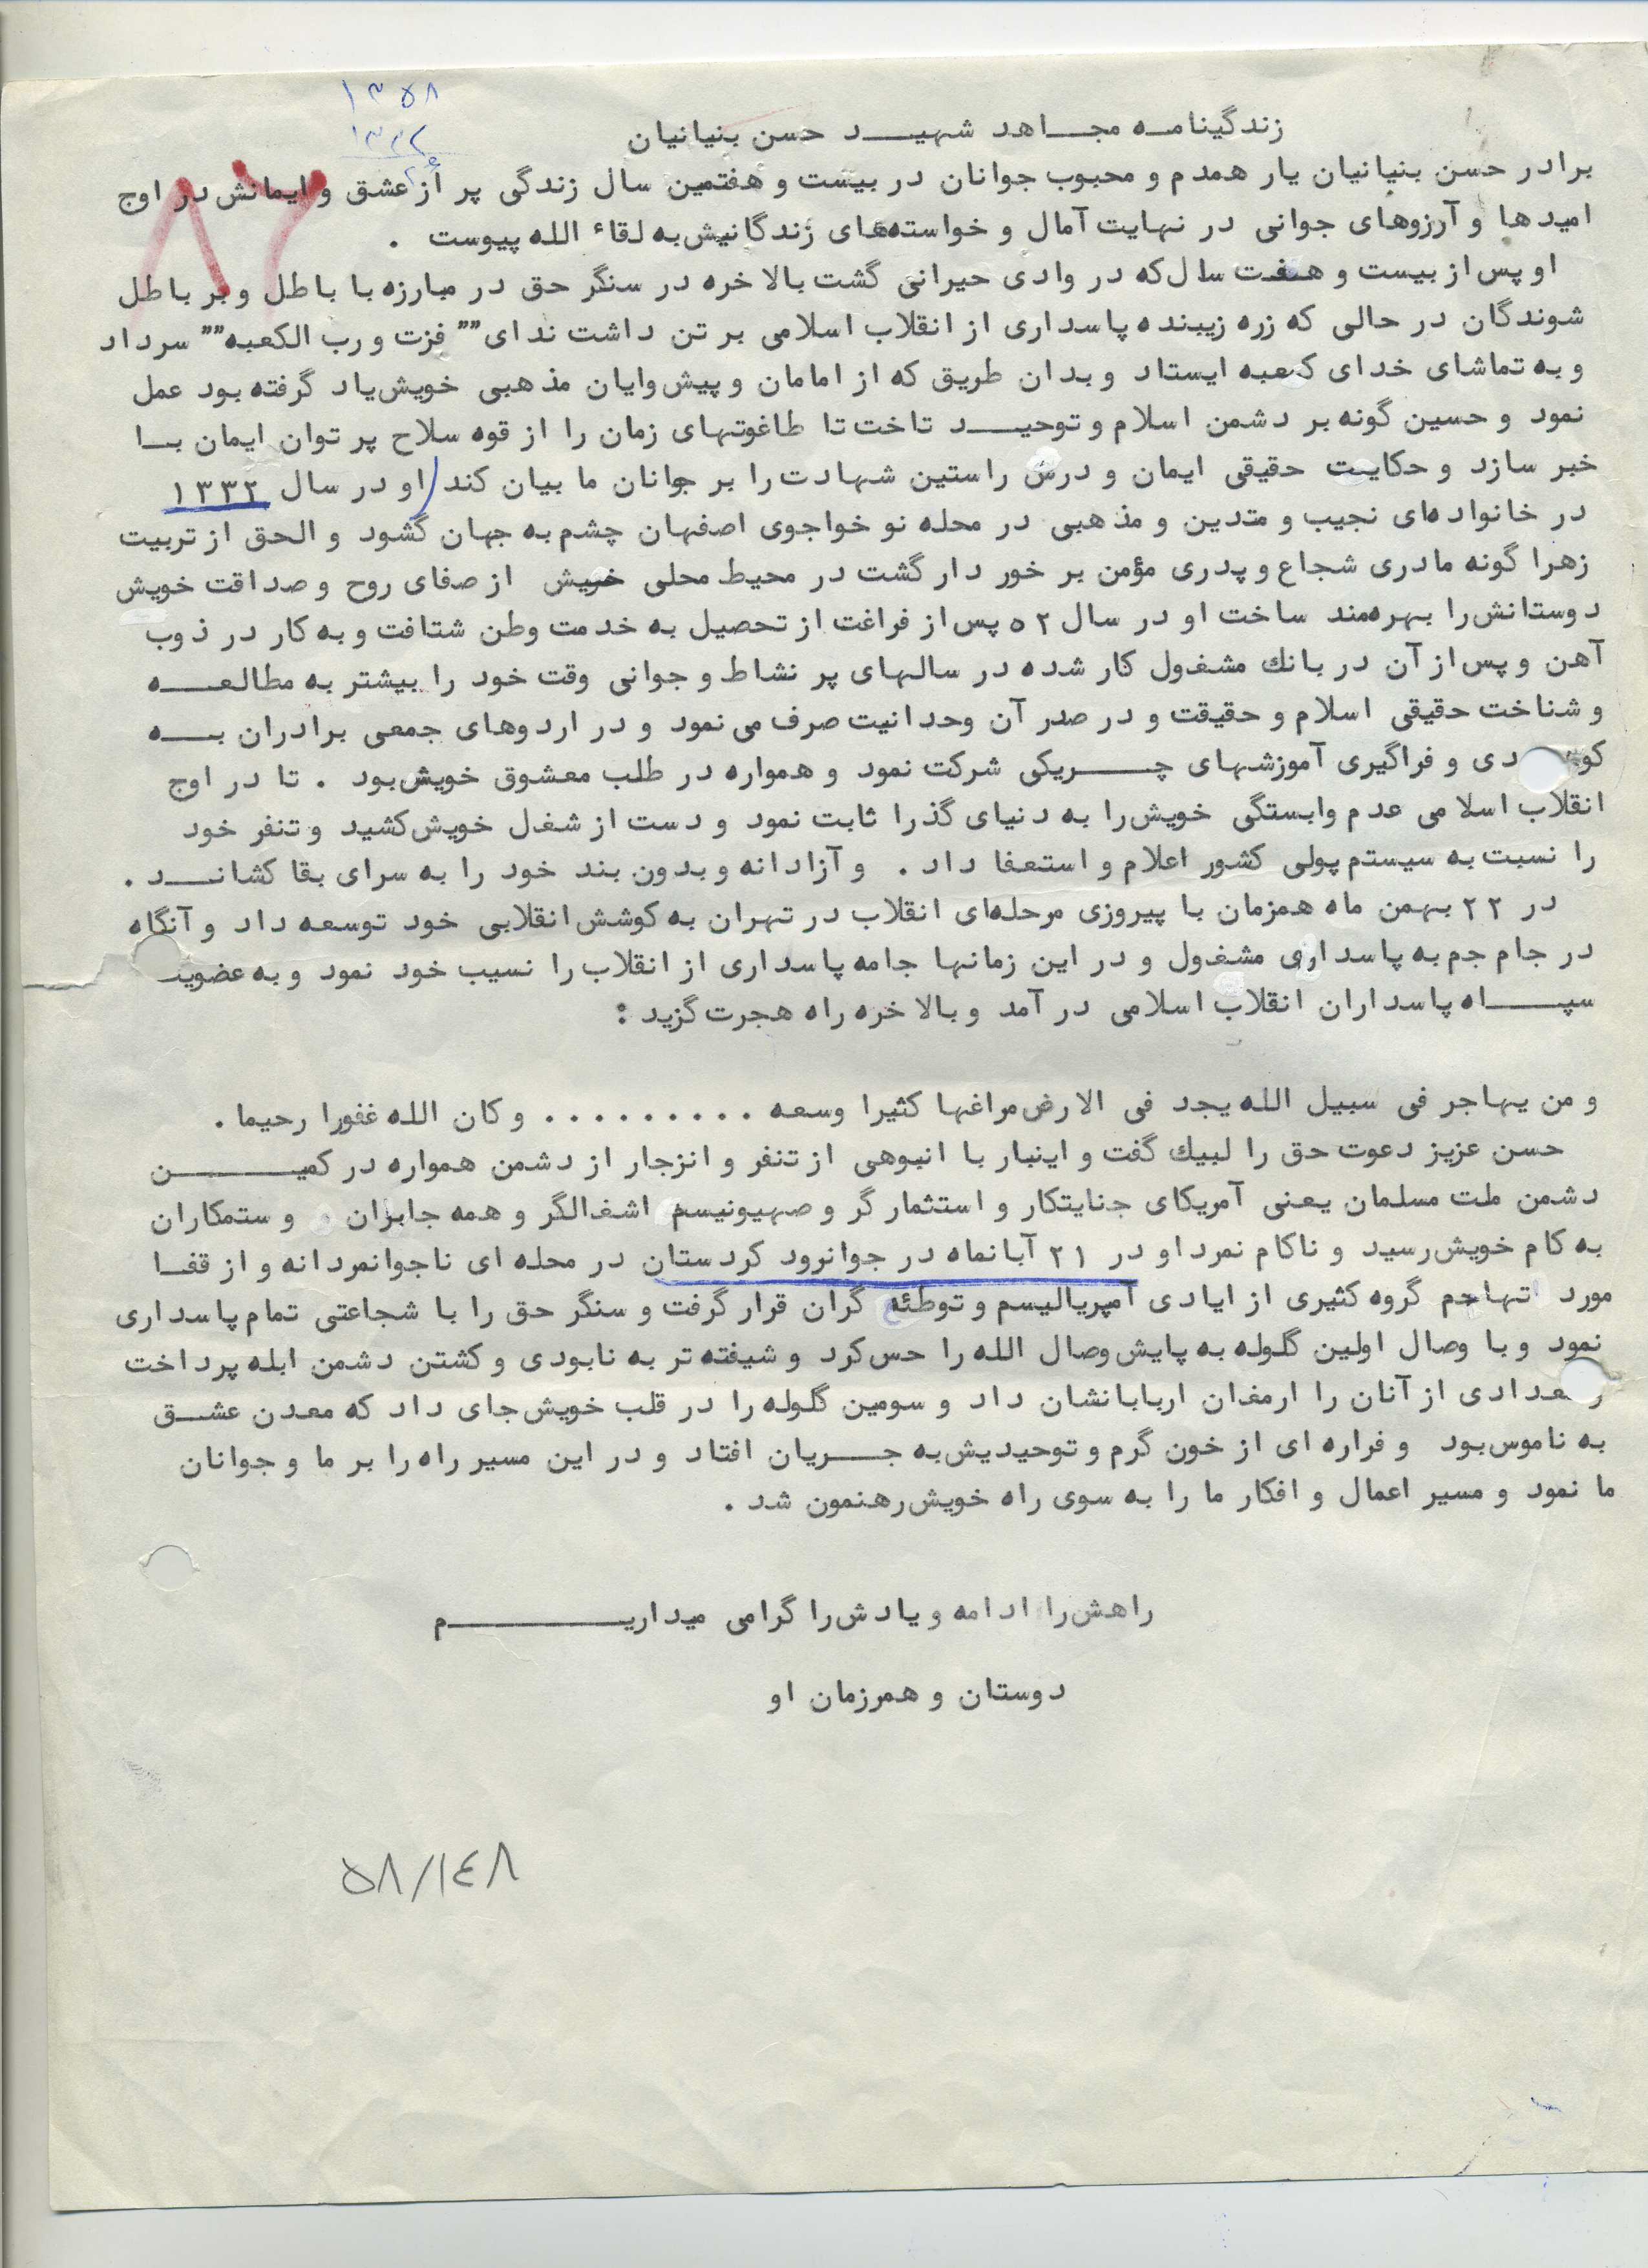 ۱۳۵۸
۱۳۳۲
۲۶
۸۲
زندگینامه مجاهد شهید حسن بنیانیان
برادر حسن بنیانیان یار همدم و محبوب جوانان در بیست و هفتمین سال زندگی پر از عشق و ایمانش در اوج
امیدها و آرزوهای جوانی در نهایت آمال و خواسته‌های زندگانیش به لقاء الله پیوست .
او پس از بیست و هفت سال که در وادی حیرانی گشت بالاخره در سنگر حق در مبارزه با باطل و بر باطل
شوندگان در حالی که زره زیبنده پاسداری از انقلاب اسلامی بر تن داشت ندای "" فزت و رب الکعبه "" سرداد
و به تماشای خدای کعبه ایستاد و بدان طریق که از امامان و پیش وایان مذهبی خویش یاد گرفته بود عمل
نمود و حسین گونه بر دشمن اسلام و توحید تاخت تا طاغوتهای زمان را از قوه سلاح پر توان ایمان با
خبر سازد و حکایت حقیقی ایمان و درس راستین شهادت را بر جوانان ما بیان کند / او در سال ۱۳۳۲
در خانواده‌ای نجیب و متدین و مذهبی در محله نو خواجوی اصفهان چشم به جهان گشود و الحق از تربیت
زهرا گونه مادری شجاع و پدری مؤمن بر خور دار گشت در محیط محلی خویش از صفای روح و صداقت خویش
دوستانش را بهره‌مند ساخت او در سال ۵۲ پس از فراغت از تحصیل به خدمت وطن شتافت و به کار در ذوب
آهن و پس از آن در بانک مشغول کار شده در سالهای پر نشاط و جوانی وقت خود را بیشتر به مطالعه
و شناخت حقیقی اسلام و حقیقت و در صدر آن وحدانیت صرف می نمود و در اردوهای جمعی برادران به
دی و فراگیری آموزشهای چریکی شرکت نمود و همواره در طلب معشوق خویش بود . تا در اوج
انقلاب اسلامی عدم وابستگی خویش را به دنیای گذرا ثابت نمود و دست از شغل خویش کشید و تنفر خود
را نسبت به سیستم پولی کشور اعلام و استعفا داد . و آزادانه و بدون بند خود را به سرای بقا کشاند .
در ۲۲ بهمن ماه همزمان با پیروزی مرحله‌ای انقلاب در تهران به کوشش انقلابی خود توسعه داد و آنگاه
در جام جم به پاسداری مشغول و در این زمانها جامه پاسداری از انقلاب را نسیب خود نمود و به عضویت
سپاه پاسداران انقلاب اسلامی در آمد و بالاخره راه هجرت گزید :
و من یهاجر فی سبیل الله یجد فی الارض مراغها کثیرا وسعه . . . . . . . . . و کان الله غفورا رحیما .
حسن عزیز دعوت حق را لبیک گفت و اینبار با انبوهی از تنفر و انزجار از دشمن همواره در کمین
دشمن ملت مسلمان یعنی آمریکای جنایتکار و استثمار گر و صهیونیسم اشغالگر و همه جابران و ستمکاران
به کام خویش رسید و ناکام نمرد او در ۲۱ آبانماه در جوانرود کردستان در محله ای ناجوانمردانه و از قفا
مورد تهاجم گروه کثیری از ایادی آمپریالیسم و توطئه گران قرار گرفت و سنگر حق را با شجاعتی تمام پاسداری
نمود و با وصال اولین گلوله به پایش وصال الله را حس کرد و شیفته تر به نابودی و کشتن دشمن ابله پرداخت
و تعدادی از آنان را ارمغان اربابانشان داد و سومین گلوله را در قلب خویش جای داد که معدن عشق
به ناموس بود و فراره ای از خون گرم و توحیدیش به جریان افتاد و در این مسیر راه را بر ما و جوانان
ما نمود و مسیر اعمال و افکار ما را به سوی راه خویش رهنمون شد .
راهش را ادامه و یادش را گرامی میداریم
دوستان و همرزمان او
۵۸/۱۴۸